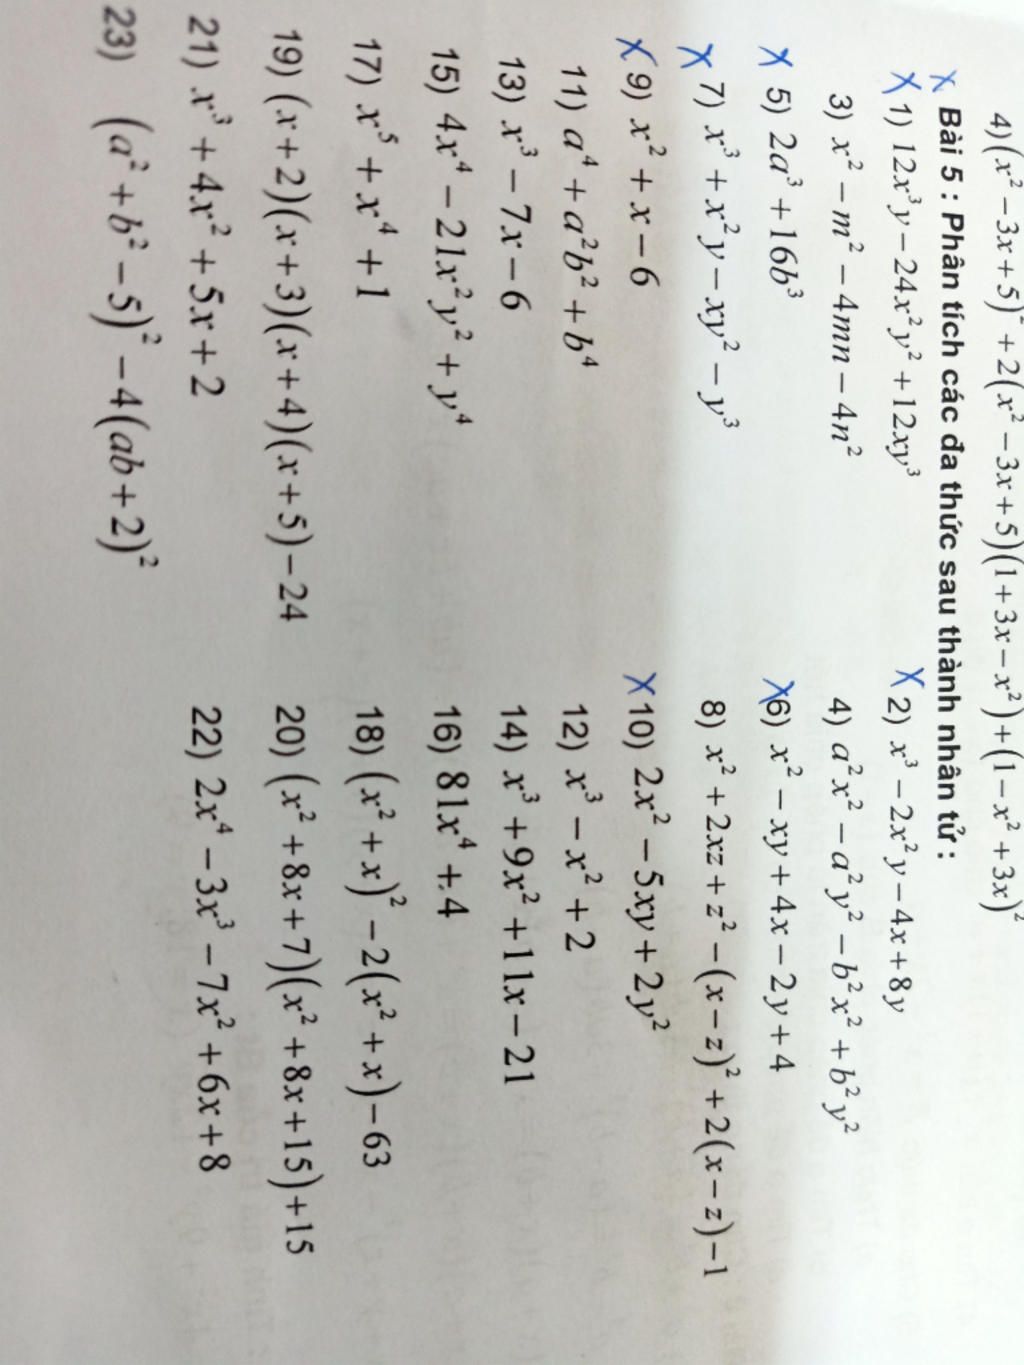 4) (x² − 3x + 5)² + 2(x² − 3x + 5)(1 + 3x − x²) + (1 − x² + 3x)²
x Bài 5 : Phân tích các đa thức sau thành nhân tử :
x 1) 12x³y − 24x²y² + 12xy³ x 2) x³ − 2x²y − 4x + 8y
3) x² − m² − 4mn − 4n² 4) a²x² − a²y² − b²x² + b²y²
x 5) 2a³ + 16b³ x 6) x² − xy + 4x − 2y + 4
x 7) x³ + x²y − xy² − y³ 8) x² + 2xz + z² − (x − z)² + 2(x − z) − 1
x 9) x² + x − 6 x 10) 2x² − 5xy + 2y²
11) a⁴ + a²b² + b⁴ 12) x³ − x² + 2
13) x³ − 7x − 6 14) x³ + 9x² + 11x − 21
15) 4x⁴ − 21x²y² + y⁴ 16) 81x⁴ + 4
17) x⁵ + x⁴ + 1 18) (x² + x)² − 2(x² + x) − 63
19) (x + 2)(x + 3)(x + 4)(x + 5) − 24 20) (x² + 8x + 7)(x² + 8x + 15) + 15
21) x³ + 4x² + 5x + 2 22) 2x⁴ − 3x³ − 7x² + 6x + 8
23) (a² + b² − 5)² − 4(ab + 2)²